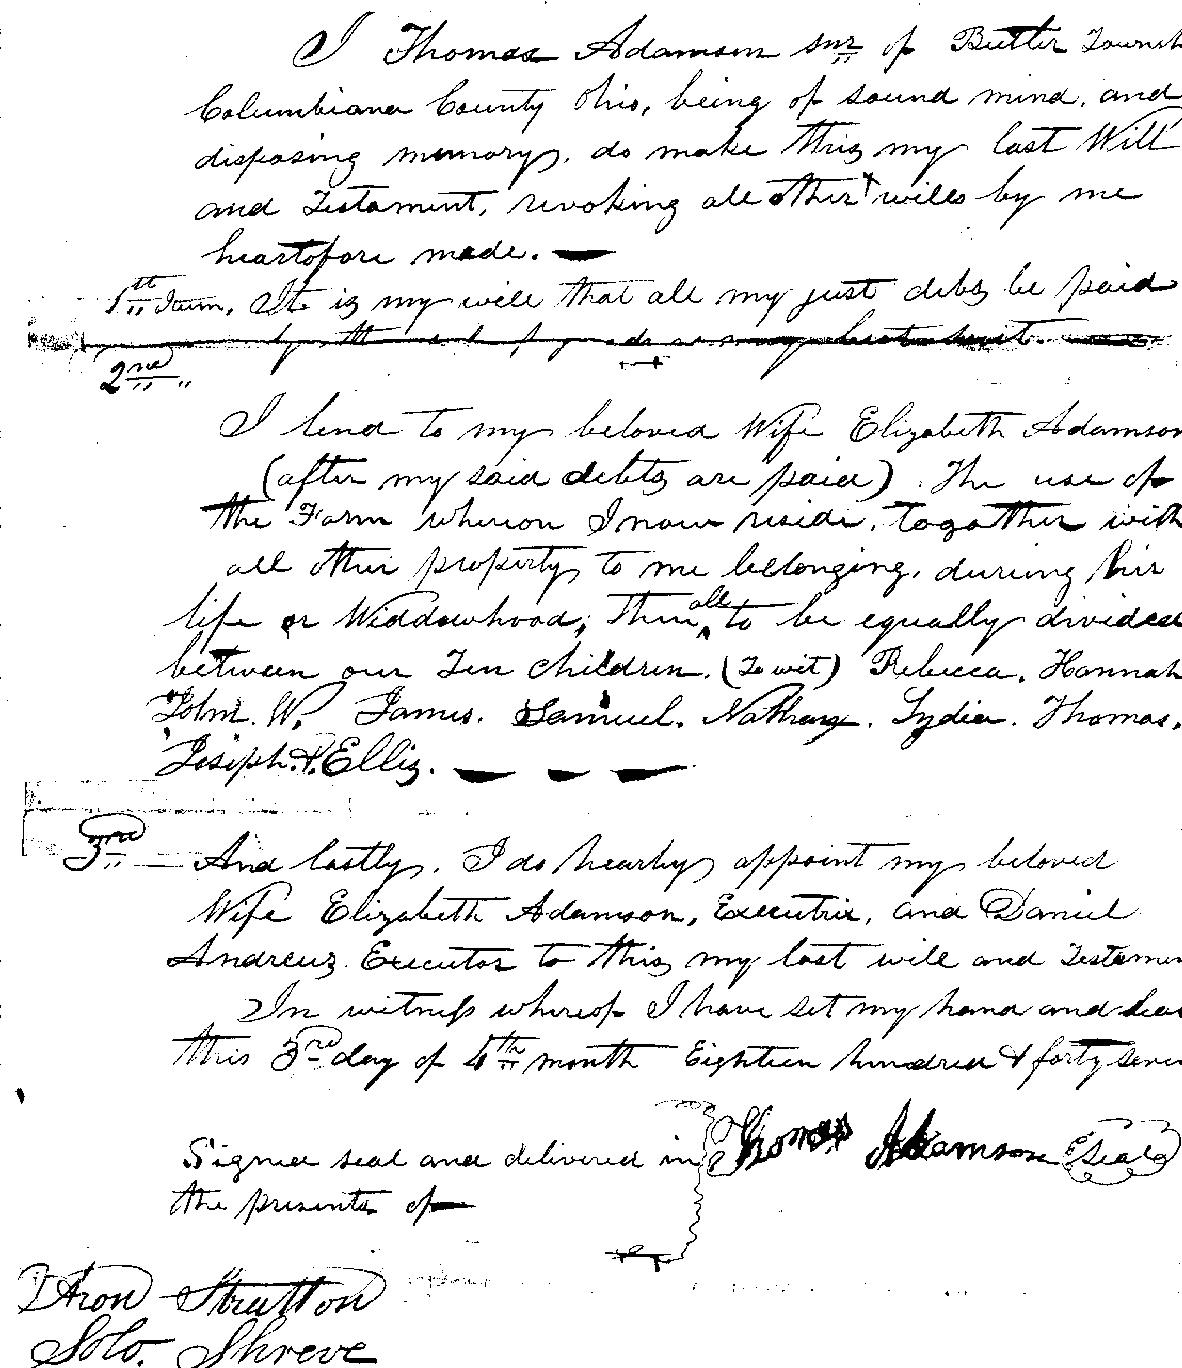 I Thomas Adamson snr of Butler Townsh
Columbiana County Ohio, being of sound mind, and
disposing memory, do make this my last Will
and Testament, revoking all other wills by me
heartofore made.
1th Item. It is my will that all my just debts be paid
by the my best suit.
2nd "
I lend to my beloved Wife Elizabeth Adamson
(after my said debts are paid). The use of
the Farm whereon I now reside, togather with
all other property to me belonging, during hir
life or Widdowhood, then all to be equally divided
between our Ten children. (To wit) Rebecca, Hannah
John. W. James. Samuel. Nathan. Lydia. Thomas.
Joseph. & Ellis.
3rd And lastly. I do hearby appoint my beloved
Wife Elizabeth Adamson, Executrix, and Daniel
Andrews Executor to this my last will and Testamen
In witness whereof I have set my hand and seal
this 3rd day of 4th month Eighteen hundred & forty seven
Thomas Adamson Seal
Signed seal and delivered in
the presents of
Aron Stratton
Solo. Shreve